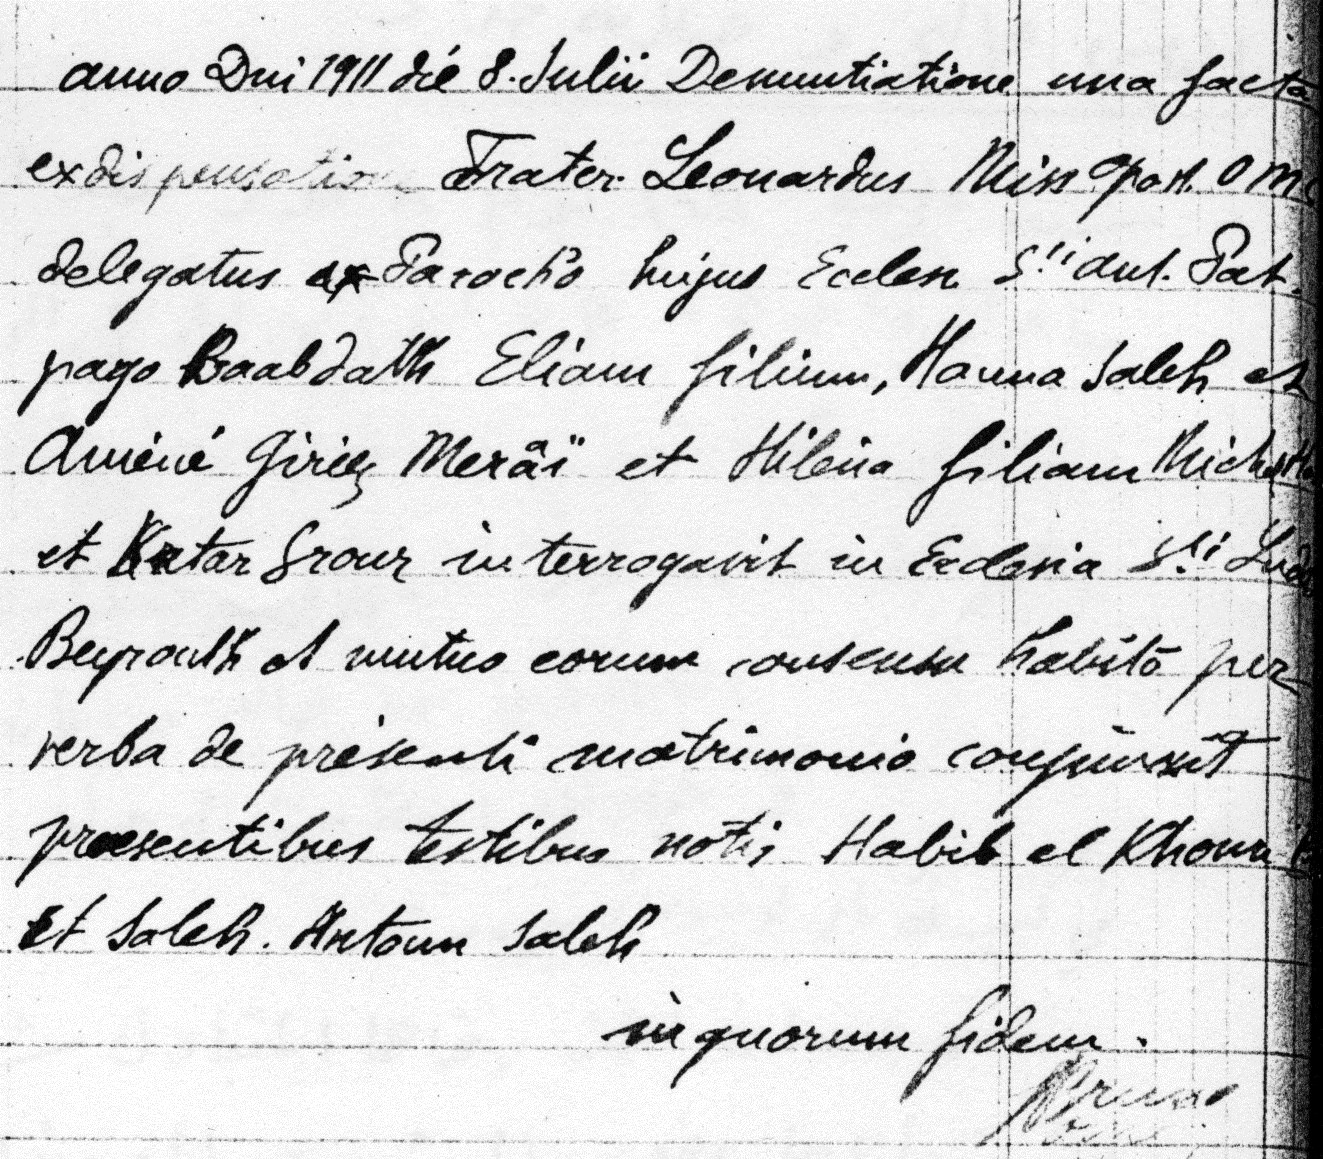 anno Dni 1911 dié 8. Julii Denuntiatione una facta
ex dispensatione Frater Leonardus Miss Apost. O M
delegatus ex Parocho hujus Eccles. Sti Ant. Pat.
pago Baabdath Eliam filium, Hanna Saleh et
Améné Giries Merâï et Hilena filiam
et interrogavit in Ecclesia Sti
Beyrouth et mutuo eorum consensu habito per
verba de présenti matrimonio conjunxit
praesentibus testibus notis Habib el Khouri
et Saleh. Antoun Saleh
in quorum fidem.